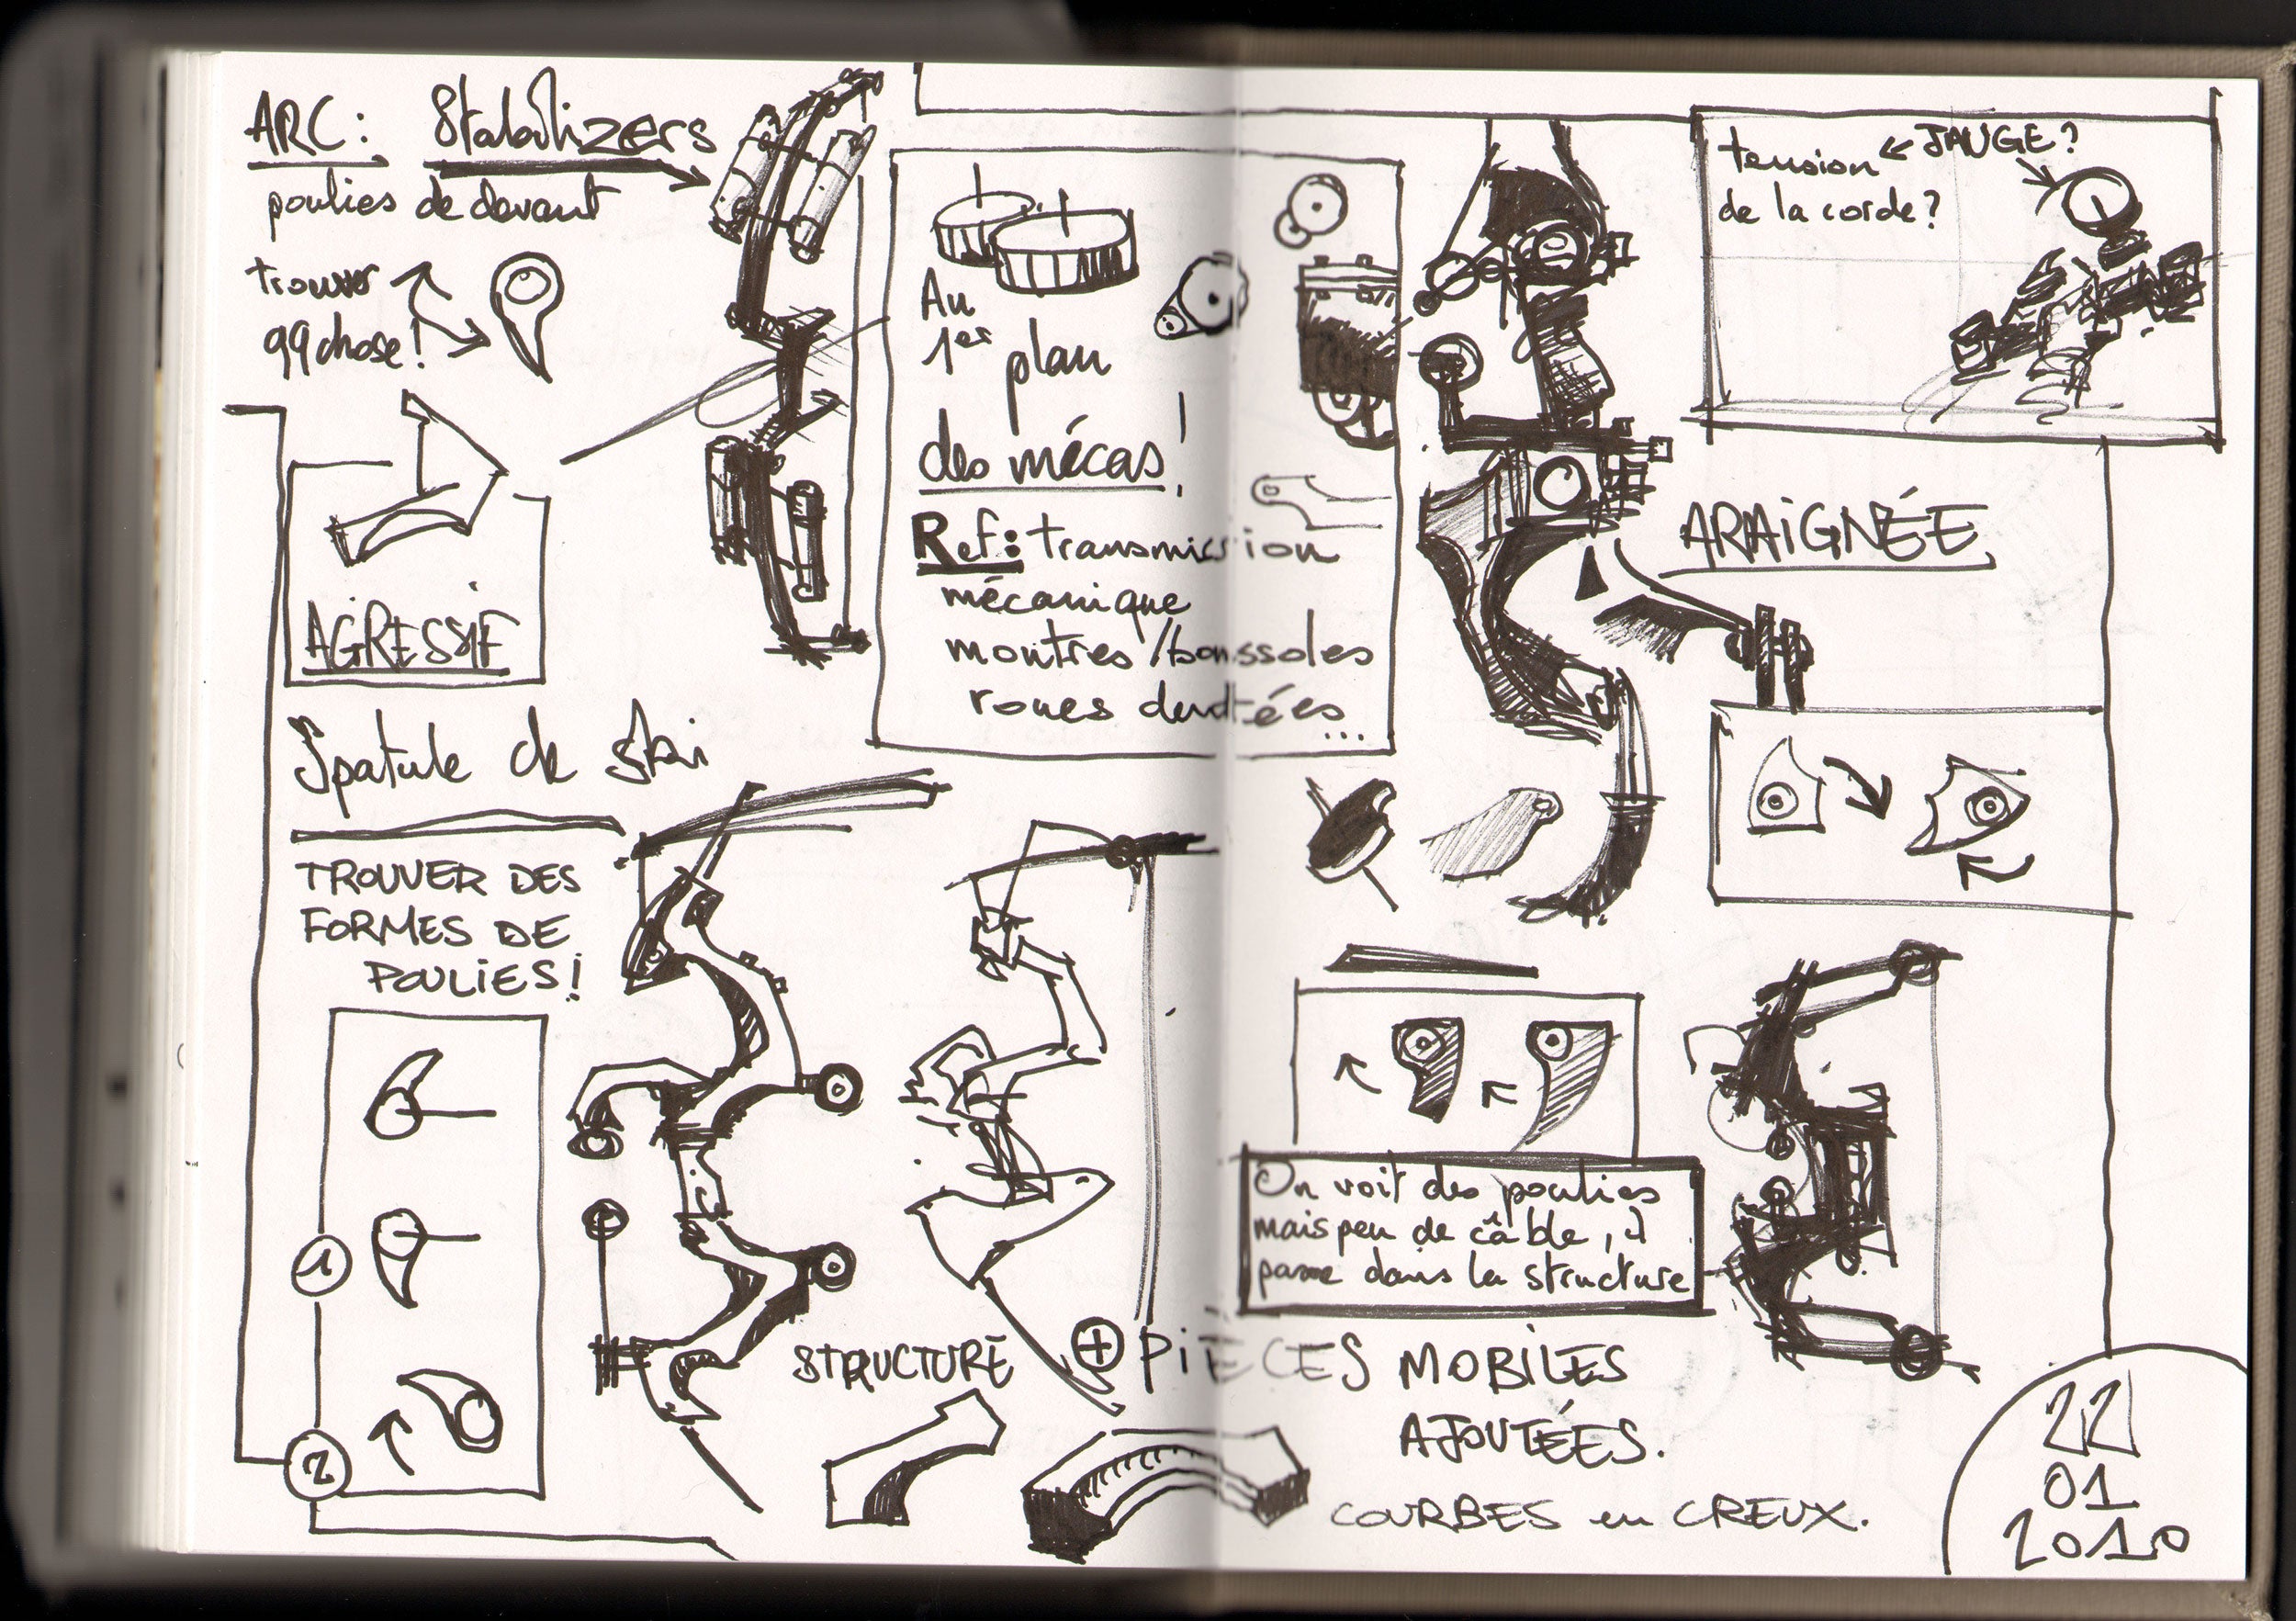 ARC: Stabilizers
poulies de devant
trouver
qqchose!
AGRESSIF
Spatule de ski
TROUVER DES
FORMES DE
POULIES!
1
2
Au
1er plan
des mécas!
Ref: transmission
mécanique
montres/boussoles
roues dentées...
STRUCTURE
+ PIÈCES MOBILES
AJOUTÉES.
COURBES en CREUX.
tension ← JAUGE?
de la corde?
ARAIGNÉE
On voit des poulies
mais peu de câble, il
passe dans la structure
22
01
2010